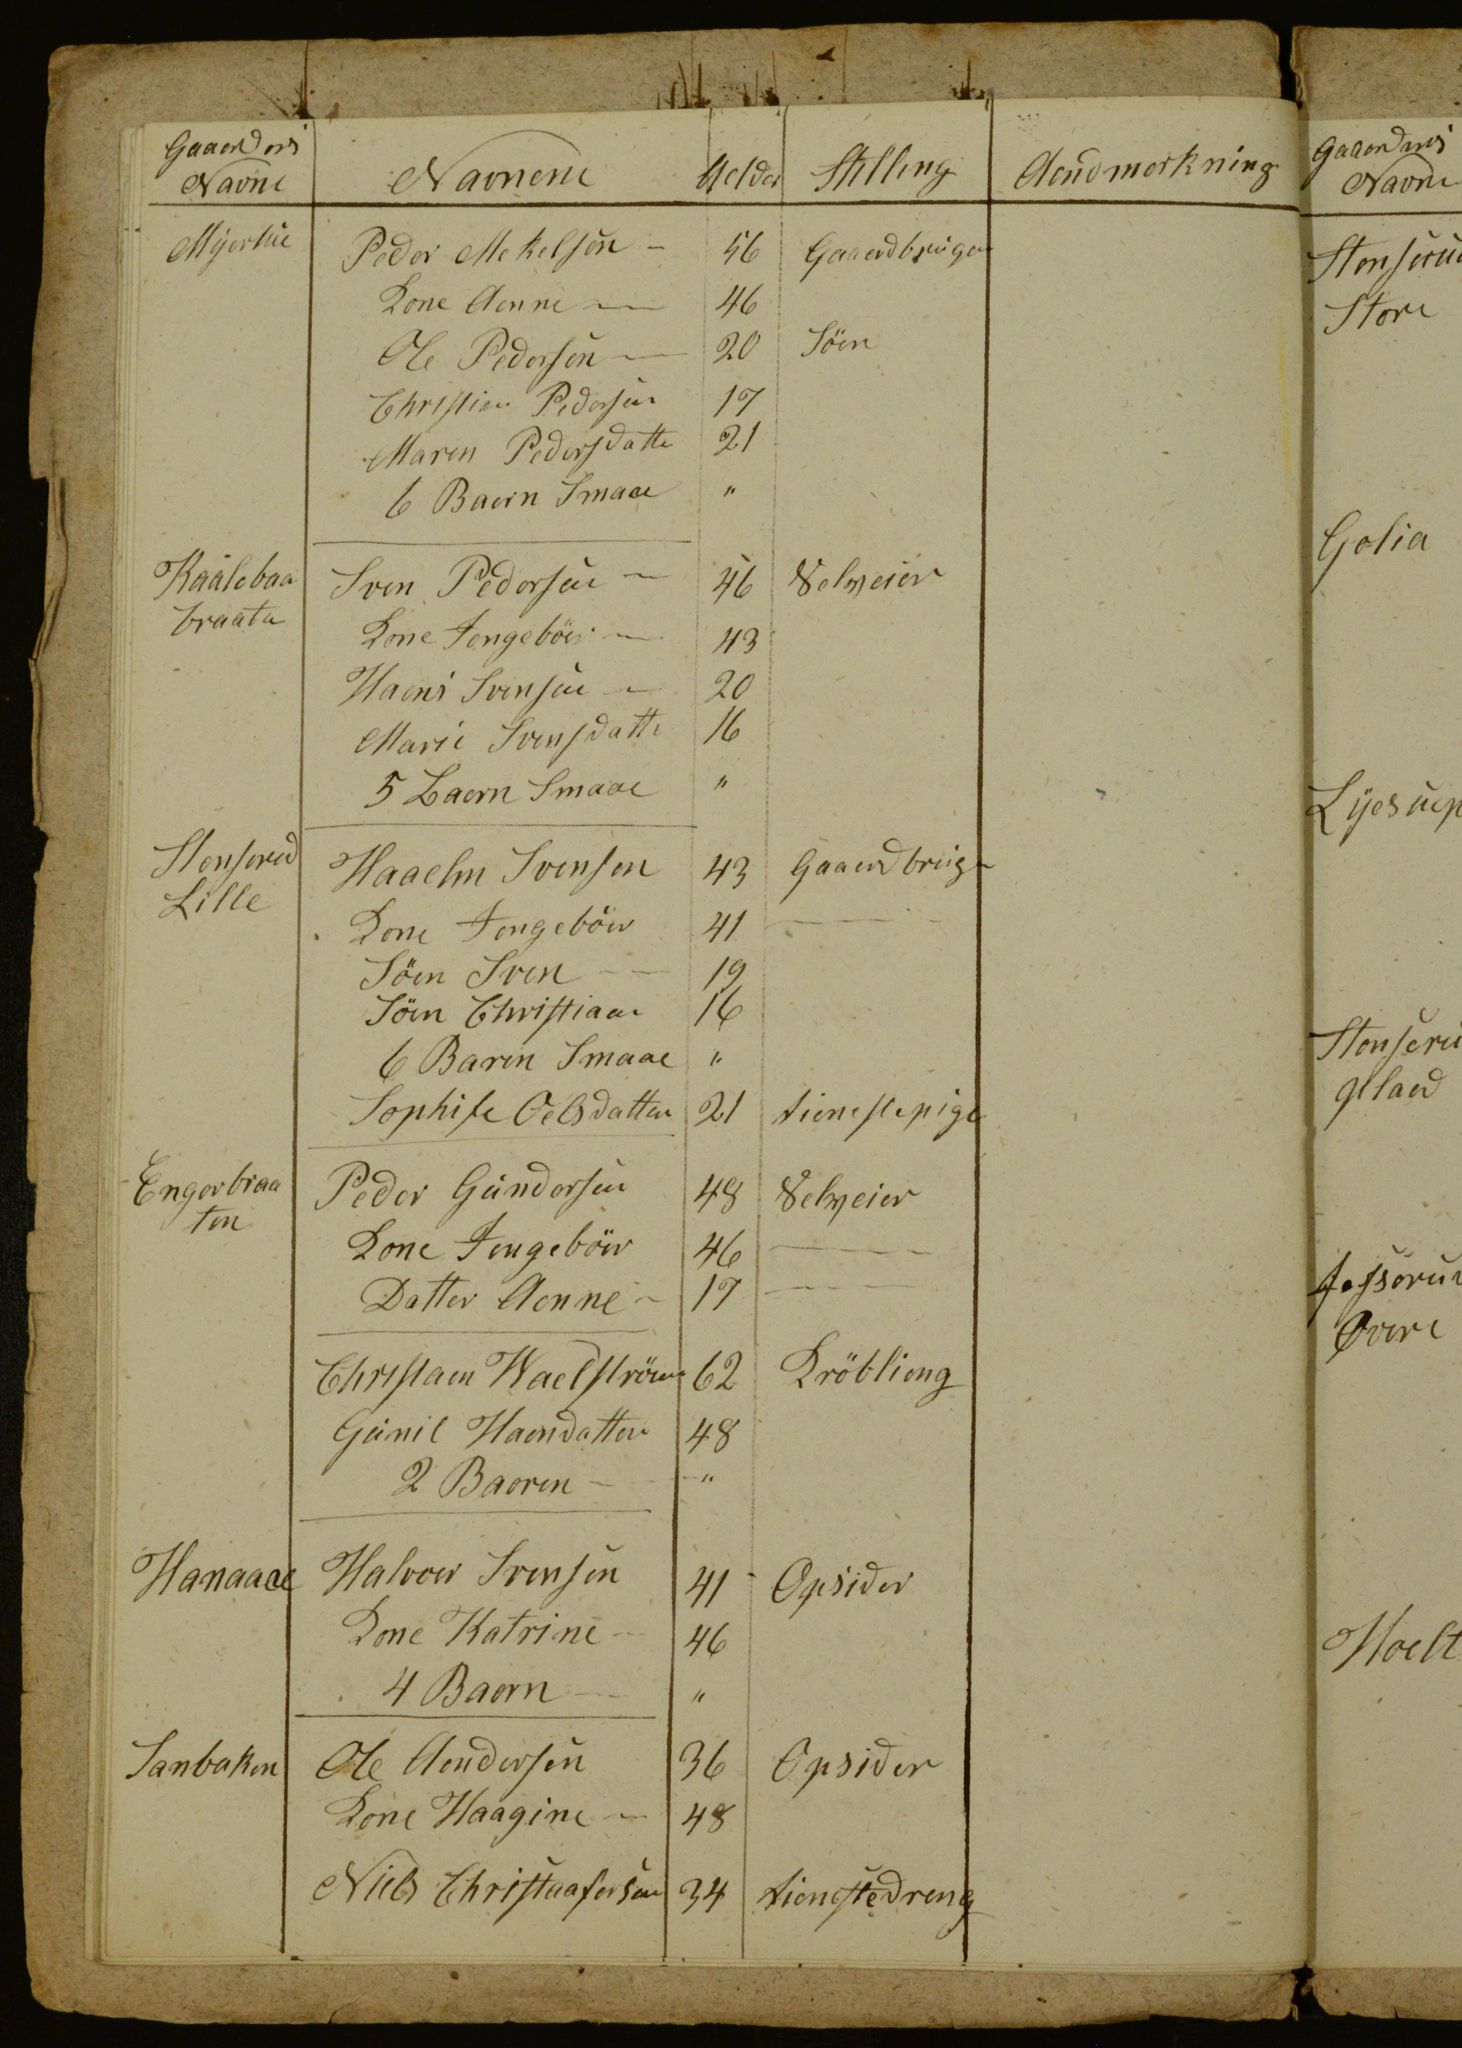 Gaaerders Navne | Navnene | Aelder | Stilling | Aendmerkning
Peder Mekelsen - 56 Gaaerdbruger
Kone Aenne - 46
Ole Pedersen - 20 Söen
Christian Pedersen 17
Maren Pedersdatte 21
6 Baern Smaae "
Kaalebaa Sven Pedersen - 46 Selveier
braata Kone Iengeböer - 43
Haens Svensen - 20
Marie Svensdatte 16
5 Baern Smaae "
Stenserud Haaelm Svensen 43 Gaaerdbruger
Lille Kone Iengebör 41
Söen Sven - 19
Söen Christiaen 16
6 Baren Smaae "
Sophise Oelsdatter 21 tienestepige
Engerbraa Peder Gundersen 48 Selveier
ten Kone Iengebör 46
Datter Aenne - 17
Christaen Waelström 62 Kröblieng
Gunil Haensdatter 48
2 Baeren - "
Hanaaae Halvoer Svensen 41 Opsider
Kone Katrine - 46
4 Baern - "
Sanbaken Ole Aendersen 36 Opsider
Kone Haagine - 48
Niels Christaafersen 34 tienestedreng
Gaaerders
Navne
Store
Golia
Overe
Hoelt